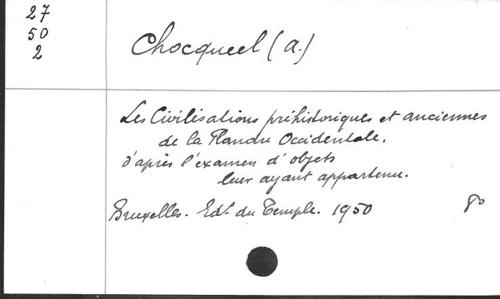 27
50
2
Chocqueel (A.)
Les Civilisations préhistoriques et anciennes
de la Flandre Occidentale,
d'après l'examen d'objets
leur ayant appartenu.
Bruxelles. Edt. du Temple. 1950
8o